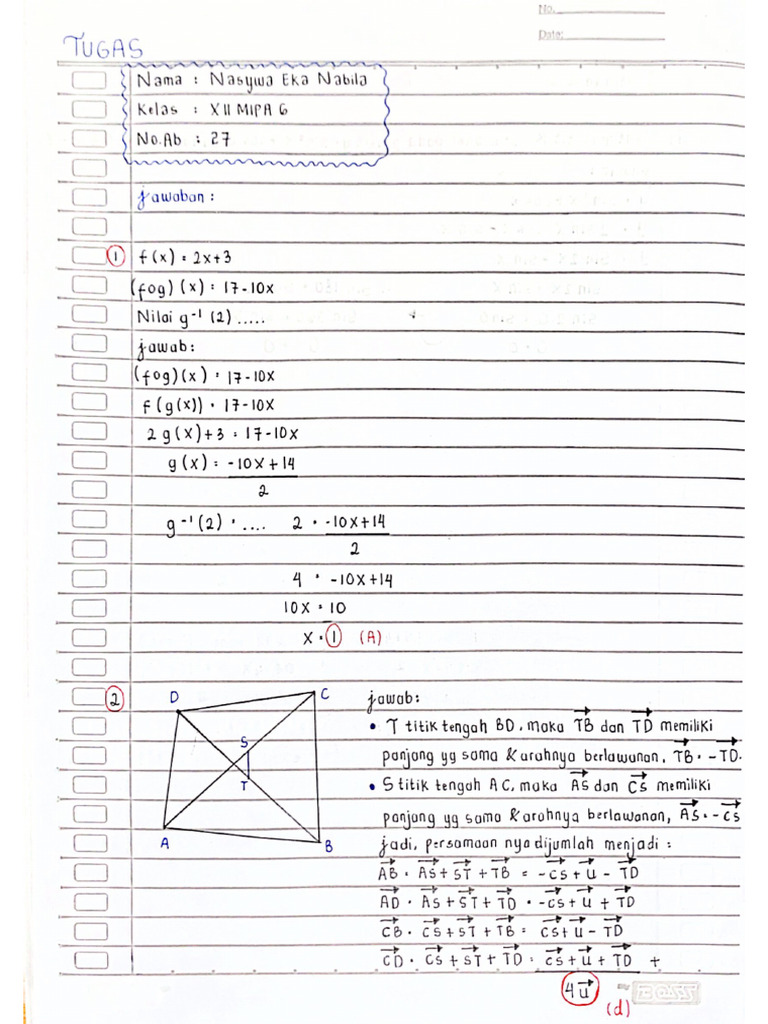 No.
Date:
TUGAS
Nama : Nasywa Eka Nabila
Kelas : XII MIPA 6
No.Ab : 27
jawaban :
1 f(x) = 2x+3
(fog)(x) = 17-10x
Nilai g⁻¹(2) .....
jawab:
(fog)(x) = 17-10x
f(g(x)) = 17-10x
2 g(x)+3 = 17-10x
g(x) = -10x+14
2
g⁻¹(2) = .... 2 = -10x+14
2
4 = -10x+14
10x = 10
x = 1 (A)
2 D C S T A B
jawab:
• T titik tengah BD, maka TB dan TD memiliki
panjang yg sama & arahnya berlawanan, TB = -TD.
• S titik tengah AC, maka AS dan CS memiliki
panjang yg sama & arahnya berlawanan, AS = -CS
jadi, persamaan nya dijumlah menjadi :
AB = AS + ST + TB = -CS + U - TD
AD = AS + ST + TD = -CS + U + TD
CB = CS + ST + TB = CS + U - TD
CD = CS + ST + TD = CS + U + TD +
4 U
(d)